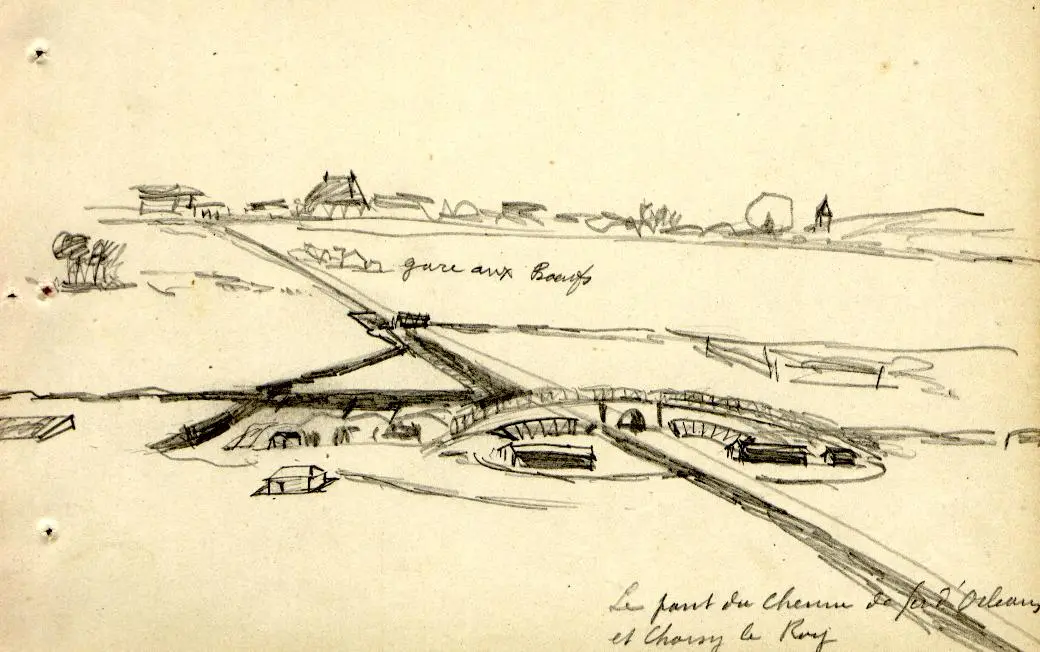 gare aux Boeufs
Le pont du Chemin de fer d'Orleans
et Choisy le Roy